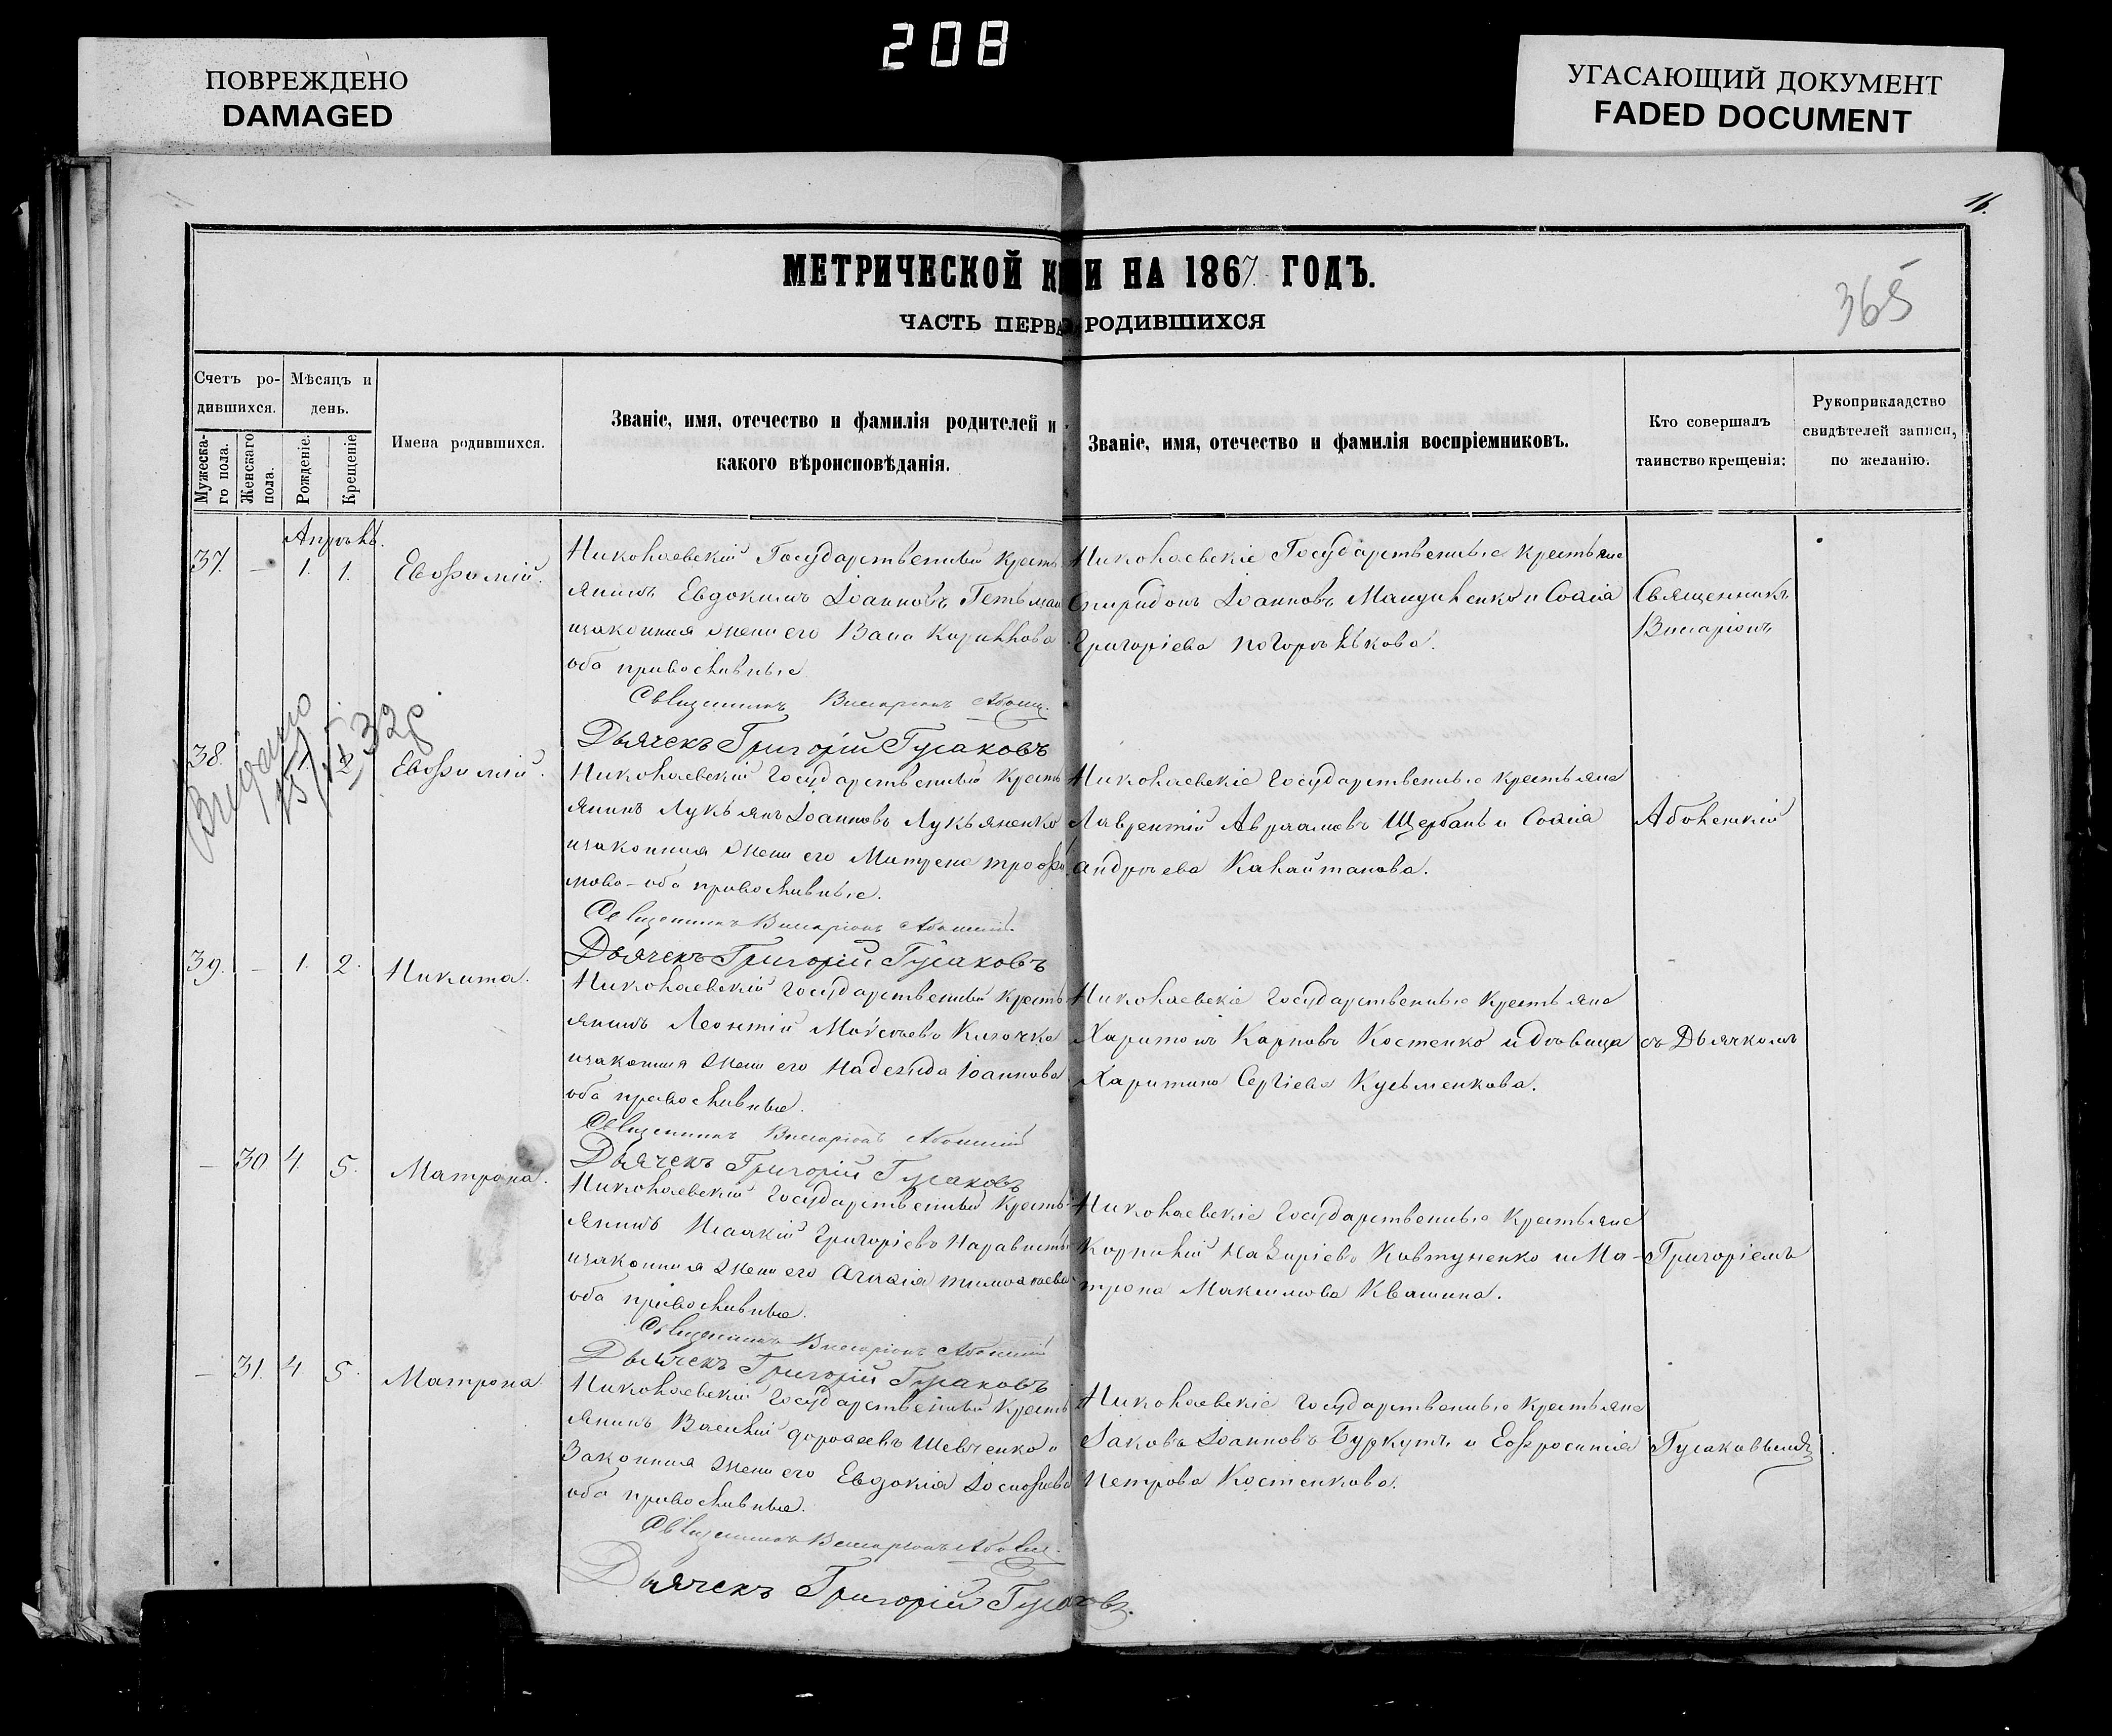 208
ПОВРЕЖДЕНО
DAMAGED
УГАСАЮЩИЙ ДОКУМЕНТ
FADED DOCUMENT
16.
МЕТРИЧЕСКОЙ К И НА 1867 ГОДЪ.
365
ЧАСТЬ ПЕРВА РОДИВШИХСЯ
Счетъ ро-
дившихся.
Мужеска-
го пола.
Женскаго
пола.
Мѣсяцъ и
день.
Рожденіе.
Крещеніе
Имена родившихся.
Званіе, имя, отечество и фамилія родителей и
какого вѣроисповѣданія.
Званіе, имя, отечество и фамилія воспріемниковъ.
Кто совершалъ
таинство крещенія:
Рукоприкладство
свидѣтелей записи,
по желанію.
Апрѣль.
37. – 1. 1. Евфимій.
Николаевскій Государственный кресть
янинъ Евдокимъ Іоанновъ Гетьман
изаконная жена его Кирилова
оба православные
Священникъ Висаріонъ
Дьячекъ Григорій Гусаковъ
Николаевскіе Государственные крестьяне
Спиридонъ Іоанновъ и Софія
Григоріева Погорѣлькова.
Священникъ
Висаріонъ
38. Евфимій.
Видано
15/XI 32 г
Николаевскій Государственный кресть
янинъ Лукьянъ Іоанновъ Лукьяненко
изаконная жена его Матрена Трофи
мова – оба православные.
Священникъ Висаріонъ
Дьячекъ Григорій Гусаковъ
Николаевскіе Государственные крестьяне
Лаврентій Авраамовъ Щербань и Софія
Андреева Калайтанова.
39. – 1. 2. Никита.
Николаевскій Государственный кресть
янинъ Леонтій Моѵсеевъ
изаконная жена его Надежда Іоаннова
оба православные.
Священникъ Висаріонъ
Дьячекъ Григорій Гусаковъ
Николаевскіе Государственные крестьяне
Харитонъ Карповъ Костенко и дѣвица
Харитина Сергіева Кузьменкова.
съ Дьячкомъ
– 30 4. 5. Матрона.
Николаевскій Государственный кресть
янинъ Исаакій Григоріевъ
изаконная жена его Агафія Тимофеева
оба православные.
Священникъ Висаріонъ
Дьячекъ Григорій Гусаковъ
Николаевскіе Государственные крестьяне
Корнилій Назаріевъ Ковтуненко и Ма-
трона Максимова Квашина.
Григоріемъ
– 31. 4 5. Матрона.
Николаевскій Государственный кресть
янинъ Василій Дорофеевъ Шевченко и
Законная жена его Евдокія Іосифова
оба православные.
Священникъ Висаріонъ
Дьячекъ Григорій Гусаковъ.
Николаевскіе Государственные крестьяне
Іаковъ Іоанновъ Буркутъ и Евфросинія
Петрова Костенкова.
Гусаковымъ